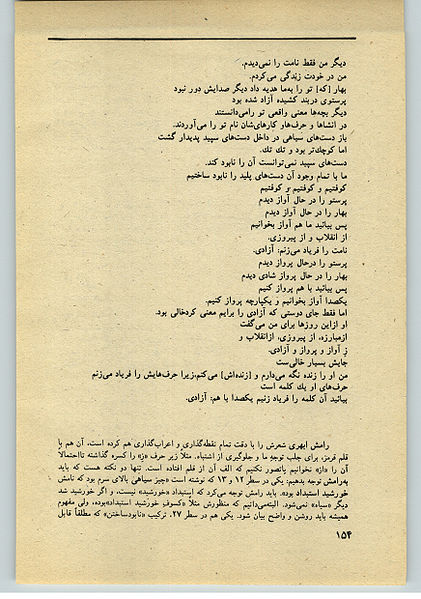 دیگر من فقط نامت را نمی‌دیدم.
من در خودت زندگی می‌کردم.
بهار [که] تو را به‌ما هدیه داد دیگر صدایش دور نبود
پرستوی دربند کشیده آزاد شده بود
دیگر بچه‌ها معنی واقعی تو رامی‌دانستند
در انشاها و حرف‌هاو کارهای‌شان نام تو را می‌آوردند.
باز دست‌های سیاهی در داخل دست‌های سپید پدیدار گشت
اما کوچك‌تر بود و تك تك.
دست‌های سپید نمی‌توانست آن را نابود کند.
ما با تمام وجود آن دست‌های پلید را نابود ساختیم
کوفتیم و کوفتیم و کوفتیم
پرستو را در حال آواز دیدم
بهار را در حال آواز دیدم
پس بیائید ما هم آواز بخوانیم
از انقلاب و از پیروزی.
نامت را فریاد می‌زنم: آزادی.
پرستو را درحال پرواز دیدم
بهار را در حال پرواز شادی دیدم
پس بیائید با هم پرواز کنیم
یکصدا آواز بخوانیم و یکپارچه پرواز کنیم.
اما فقط جای دوستی که آزادی را برایم معنی کردخالی بود.
او ازاین روزها برای من می‌گفت
ازمبارزه، از پیروزی، ازانقلاب و
ز آواز و پرواز و آزادی.
جایش بسیار خالی‌ست
من او را زنده نگه می‌دارم و [زنده‌اش] می‌کنم،زیرا حرف‌هایش را فریاد می‌زنم
حرف‌های او یك کلمه است
بیائید آن کلمه را فریاد زنیم یکصدا با هم: آزادی.
رامش ابهری شعرش را با دقت تمام نقطه‌گذاری و اعراب‌گذاری هم کرده است، آن هم با
قلم قرمز، برای جلب توجه ما و جلوگیری از اشتباه. مثلاً زیر حرف «ز» را کسره گذاشته تااحتمالا
آن را «از» نخوانیم یاتصور نکنیم که الف آن از قلم افتاده است. تنها دو نکته هست که باید
به‌رامش توجه بدهیم: یکی در سطر ۱۲ و ۱۳ که نوشته است «چیز سیاهی بالای سرم بود که نامش
خورشید استبداد بود». باید رامش توجه می‌کرد که استبداد «خورشید» نیست، و اگر خورشید شد
دیگر «سیاه» نمی‌شود. البته‌می‌دانیم که منظورش مثلاً «کسوف خورشید استبداد»بوده، ولی مفهوم
همیشه باید روشن و واضح بیان شود. یکی هم در سطر ۲۷. ترکیب «نابودساختن» که مطلقاً قابل
۱۵۴